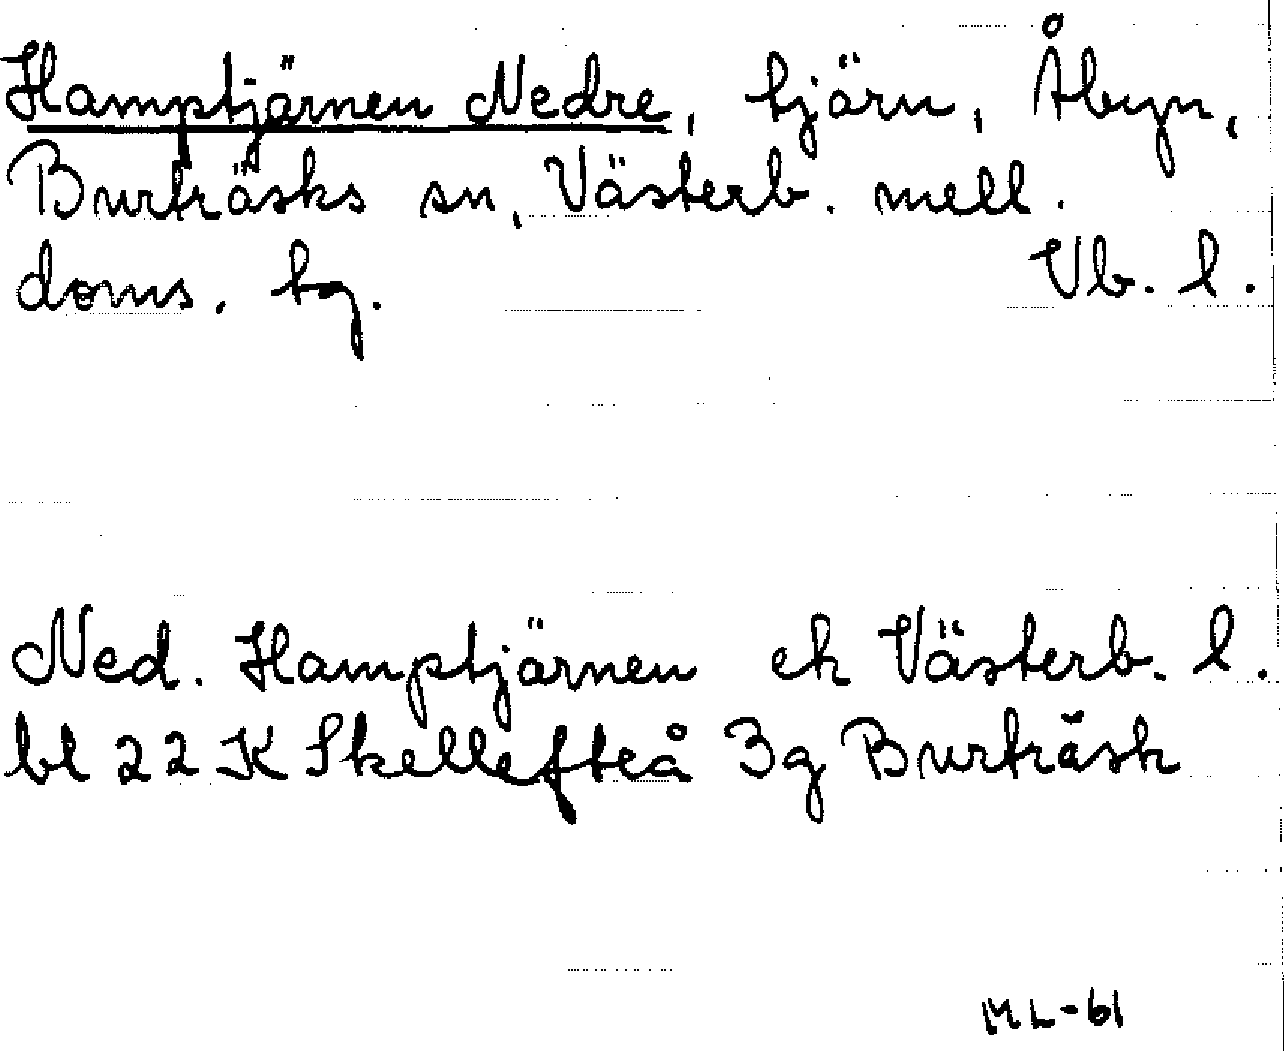 Hamptjärnen Nedre, tjärn, Åbyn,
Burträsks sn, Västerb. mell.
doms. tg. Vb. l.
Ned. Hamptjärnen ek Västerb. l.
bl 22 K Skellefteå 3g Burträsk
ML-61